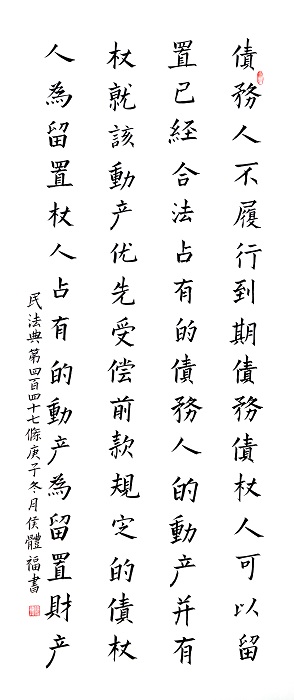 債務人不履行到期債務債杖人可以留
置已経合法占有的債務人的動产并有
杖就該動产优先受偿前款規定的債杖
人為留置杖人占有的動产為留置財产
民法典第四百四十七條庚子冬月侯體福書